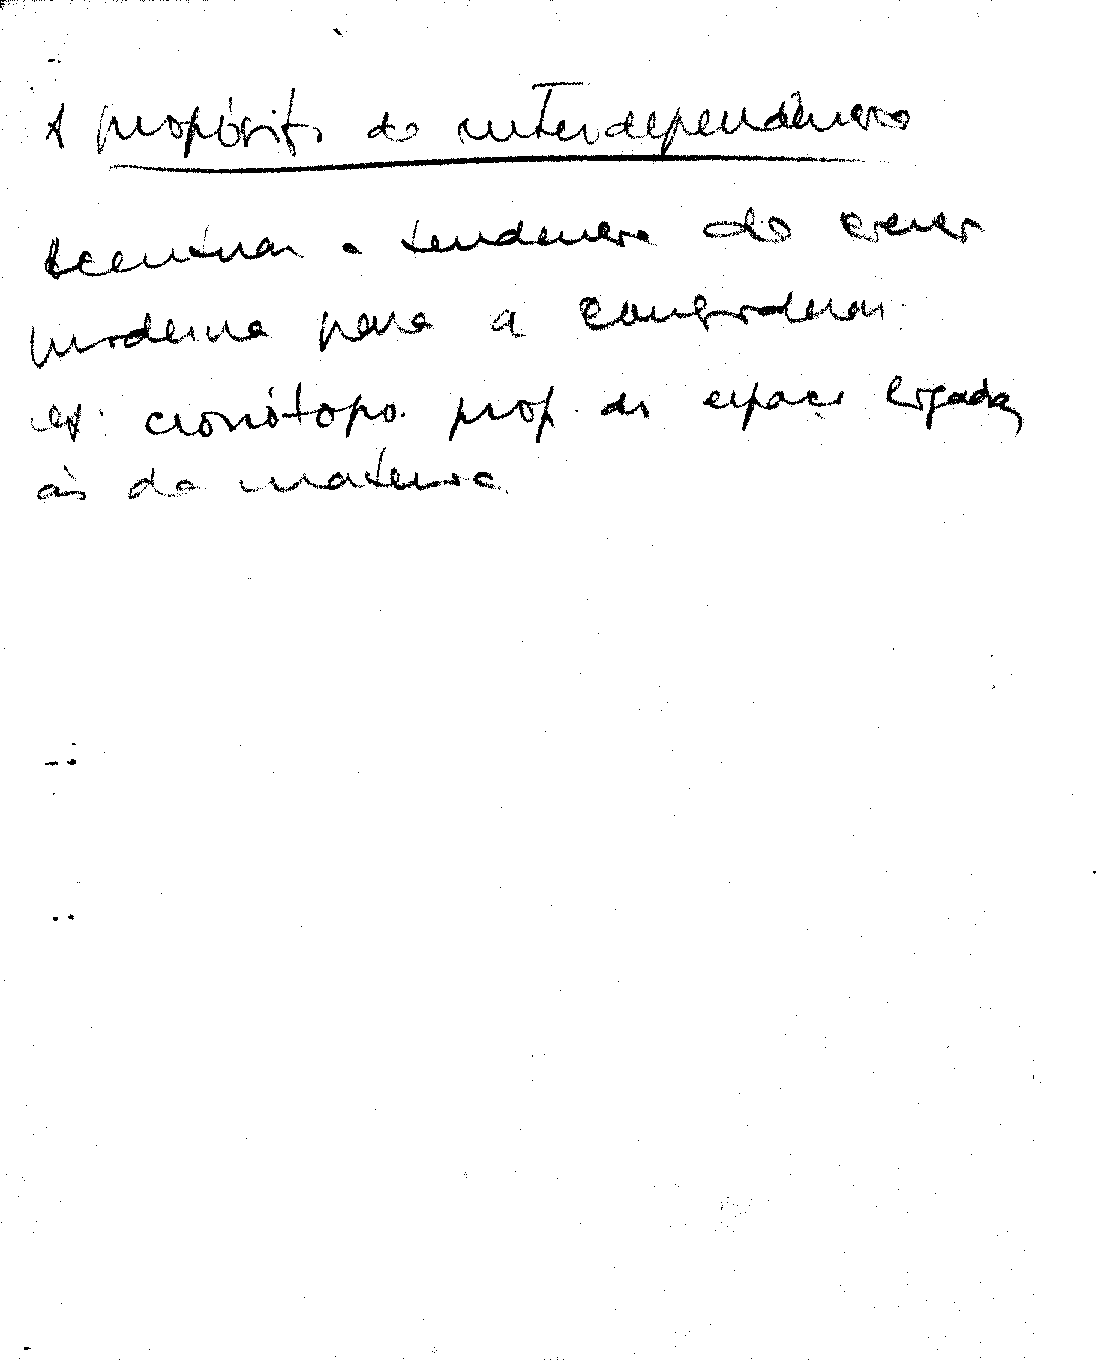 A propósito da interdependência
Acentuar a tendência da ciência
moderna para a considerar.
ex. cronótopo. prop. do espaço ligadas
às da matéria.